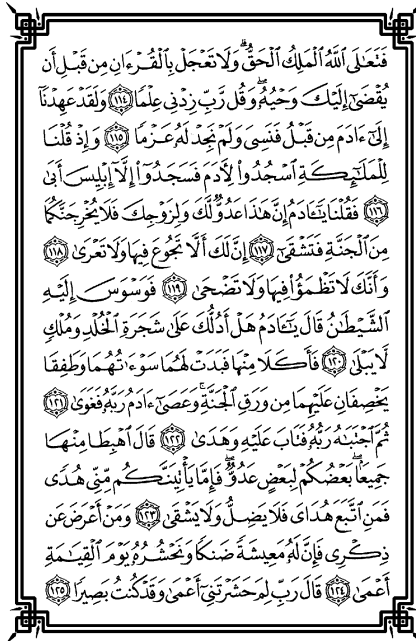 فَتَعَٰلَى ٱللَّهُ ٱلْمَلِكُ ٱلْحَقُّ ۗ وَلَا تَعْجَلْ بِٱلْقُرْءَانِ مِن قَبْلِ أَن
يُقْضَىٰٓ إِلَيْكَ وَحْيُهُۥ ۖ وَقُل رَّبِّ زِدْنِى عِلْمًا ۝١١٤ وَلَقَدْ عَهِدْنَآ
إِلَىٰٓ ءَادَمَ مِن قَبْلُ فَنَسِىَ وَلَمْ نَجِدْ لَهُۥ عَزْمًا ۝١١٥ وَإِذْ قُلْنَا
لِلْمَلَٰٓئِكَةِ ٱسْجُدُوا۟ لِءَادَمَ فَسَجَدُوٓا۟ إِلَّآ إِبْلِيسَ أَبَىٰ
۝١١٦ فَقُلْنَا يَٰٓـَٔادَمُ إِنَّ هَٰذَا عَدُوٌّ لَّكَ وَلِزَوْجِكَ فَلَا يُخْرِجَنَّكُمَا
مِنَ ٱلْجَنَّةِ فَتَشْقَىٰٓ ۝١١٧ إِنَّ لَكَ أَلَّا تَجُوعَ فِيهَا وَلَا تَعْرَىٰ ۝١١٨
وَأَنَّكَ لَا تَظْمَؤُا۟ فِيهَا وَلَا تَضْحَىٰ ۝١١٩ فَوَسْوَسَ إِلَيْهِ
ٱلشَّيْطَٰنُ قَالَ يَٰٓـَٔادَمُ هَلْ أَدُلُّكَ عَلَىٰ شَجَرَةِ ٱلْخُلْدِ وَمُلْكٍ
لَّا يَبْلَىٰ ۝١٢٠ فَأَكَلَا مِنْهَا فَبَدَتْ لَهُمَا سَوْءَٰتُهُمَا وَطَفِقَا
يَخْصِفَانِ عَلَيْهِمَا مِن وَرَقِ ٱلْجَنَّةِ ۚ وَعَصَىٰٓ ءَادَمُ رَبَّهُۥ فَغَوَىٰ ۝١٢١
ثُمَّ ٱجْتَبَٰهُ رَبُّهُۥ فَتَابَ عَلَيْهِ وَهَدَىٰ ۝١٢٢ قَالَ ٱهْبِطَا مِنْهَا
جَمِيعًۢا ۖ بَعْضُكُمْ لِبَعْضٍ عَدُوٌّ ۖ فَإِمَّا يَأْتِيَنَّكُم مِّنِّى هُدًى
فَمَنِ ٱتَّبَعَ هُدَاىَ فَلَا يَضِلُّ وَلَا يَشْقَىٰ ۝١٢٣ وَمَنْ أَعْرَضَ عَن
ذِكْرِى فَإِنَّ لَهُۥ مَعِيشَةً ضَنكًا وَنَحْشُرُهُۥ يَوْمَ ٱلْقِيَٰمَةِ
أَعْمَىٰ ۝١٢٤ قَالَ رَبِّ لِمَ حَشَرْتَنِىٓ أَعْمَىٰ وَقَدْ كُنتُ بَصِيرًا ۝١٢٥